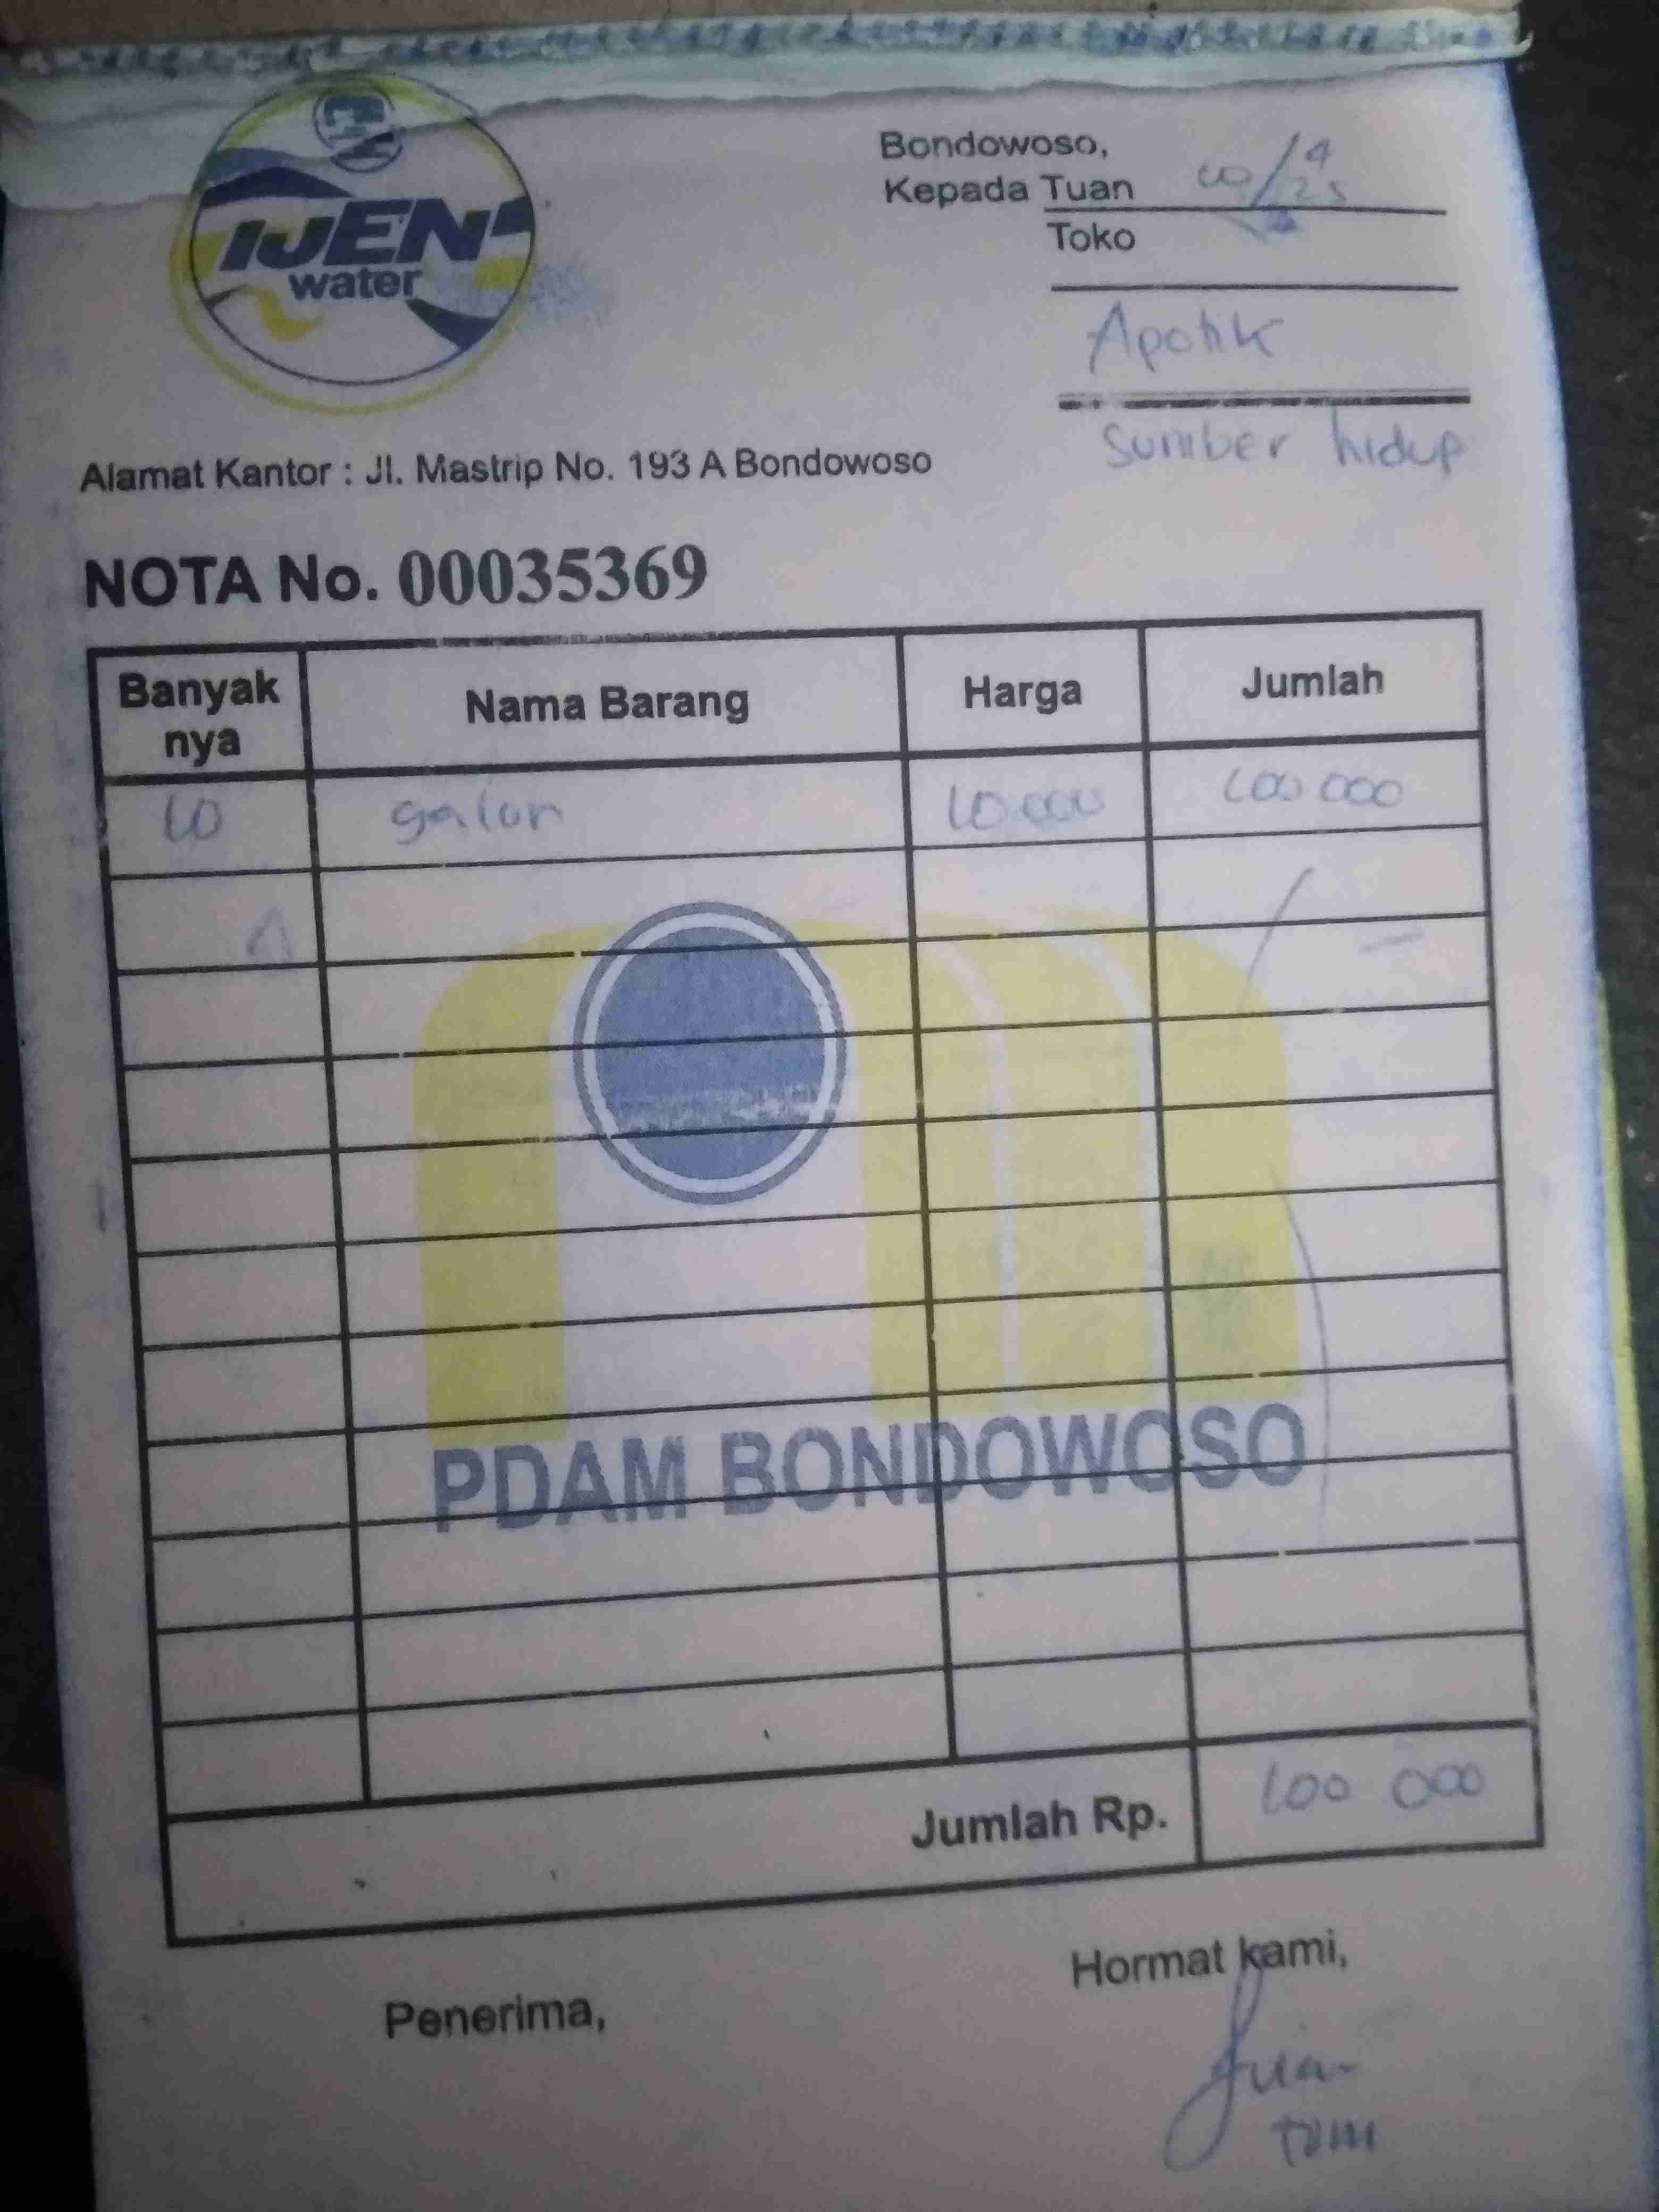 IJEN
water
Bondowoso,
10/4
Kepada Tuan 25
Toko
Apotik
Sumber hidup
Alamat Kantor : Jl. Mastrip No. 193 A Bondowoso
NOTA No. 00035369
Banyak nya Nama Barang Harga Jumlah
10 galon 10.000 100 000
PDAM BONDOWOSO
Jumlah Rp. 100 000
Penerima, Hormat kami,